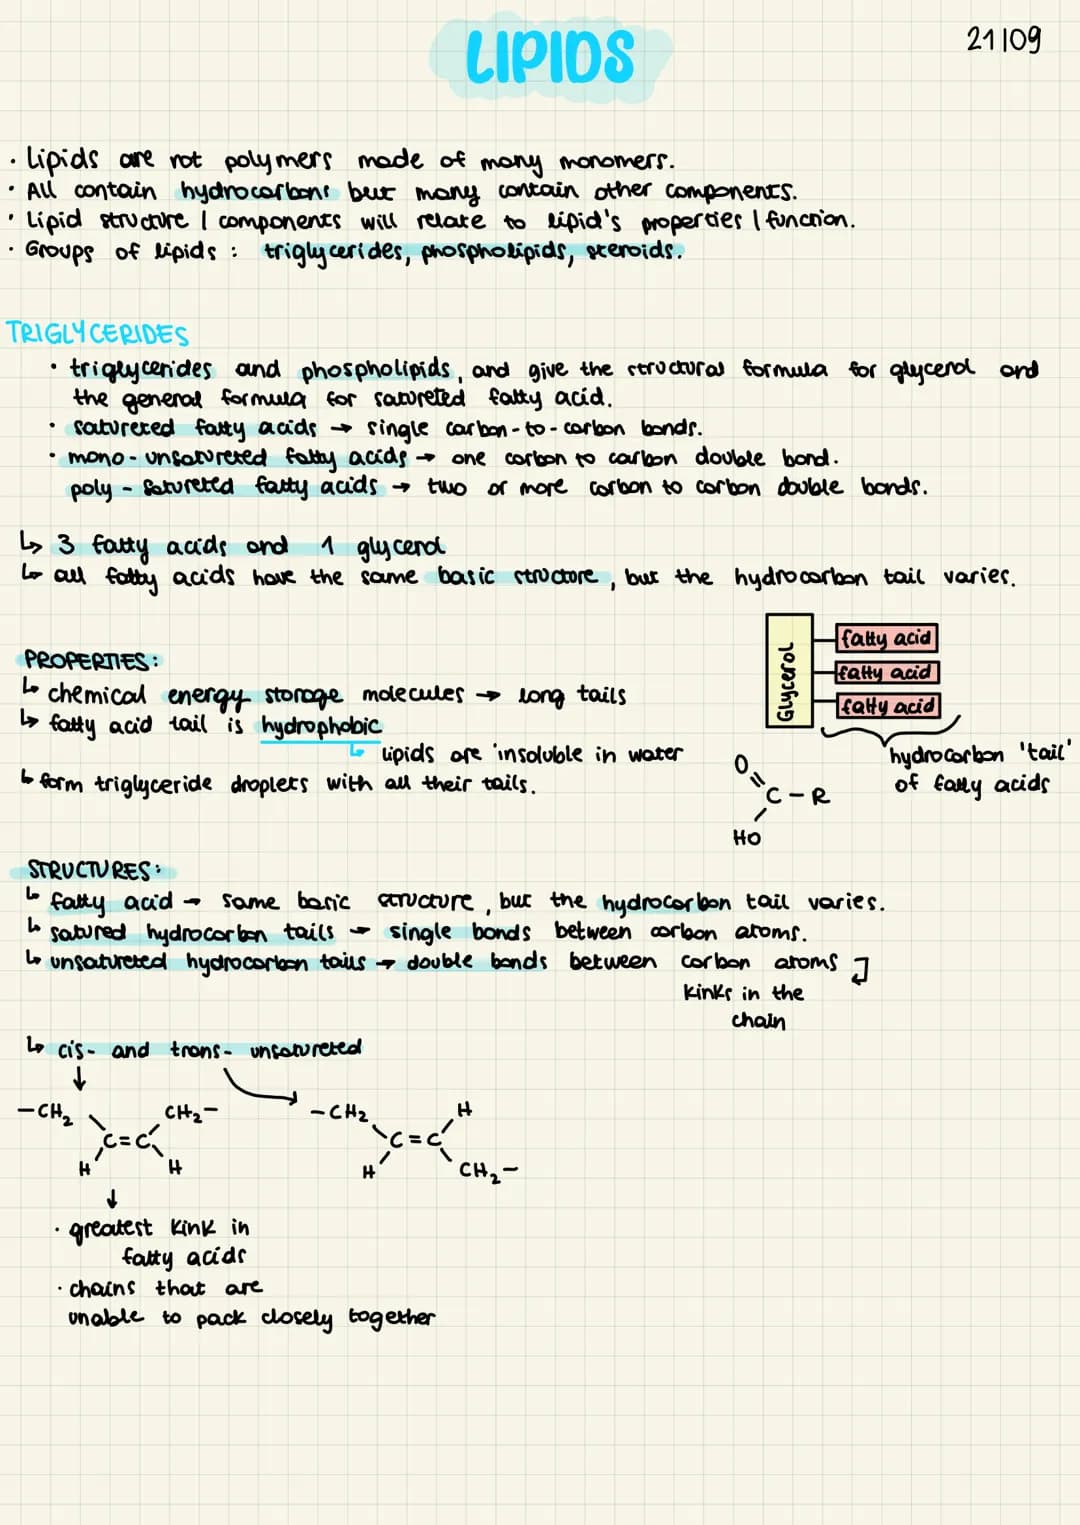 LIPIDS
21/09
· Lipids are not polymers made of many monomers.
· All contain hydrocarbons but many contain other components.
· Lipid structure / components will relate to lipid's properties / function.
· Groups of lipids : triglycerides, phospholipids, steroids.
TRIGLYCERIDES
· triglycerides and phospholipids, and give the structural formula for glycerol and
the general formula for satureted fatty acid.
· satureted fatty acids → single carbon-to-carbon bonds.
· mono-unsatureted fatty acids → one carbon to carbon double bond.
poly-satureted fatty acids → two or more carbon to carbon double bonds.
↳ 3 fatty acids and 1 glycerol
↳ all fatty acids have the same basic structure, but the hydrocarbon tail varies.
Glycerol
fatty acid
fatty acid
fatty acid
hydrocarbon 'tail'
of fatty acids
PROPERTIES:
↳ chemical energy storage molecules → long tails
↳ fatty acid tail is hydrophobic
↳ lipids are insoluble in water
↳ form triglyceride droplets with all their tails.
O
C-R
HO
STRUCTURES:
↳ fatty acid → same basic structure, but the hydrocarbon tail varies.
↳ satured hydrocarbon tails → single bonds between carbon atoms.
↳ unsatureted hydrocarbon tails → double bonds between carbon atoms
kinks in the
chain
↳ cis- and trans- unsatureted
-CH₂ CH₂-
C=C
H H
-CH₂ H
C=C
H CH₂-
· greatest kink in
fatty acids
· chains that are
unable to pack closely together